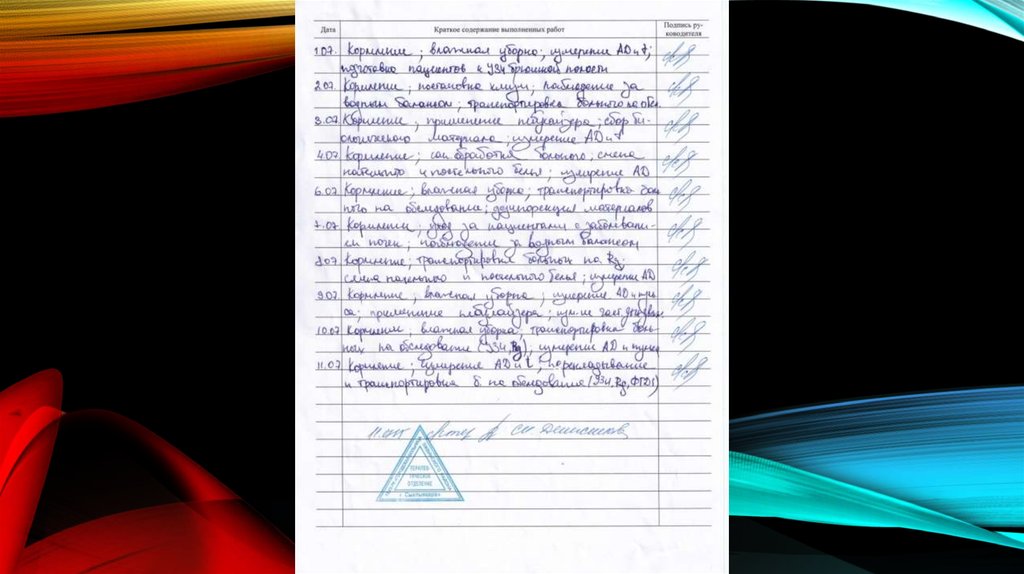 Дата Краткое содержание выполненных работ Подпись ру-
ководителя
1.07. Кормление; влажная уборка; измерение АД и t;
подготовка пациентов к УЗИ брюшной полости
2.07. Кормление; постановка клизм; наблюдение за
водным балансом; транспортировка больного на обсл.
3.07. Кормление; применение небулайзера; сбор би-
ологического материала; измерение АД и t
4.07. Кормление; сан. обработка больного, смена
нательного и постельного белья; измерение АД
6.07. Кормление; влажная уборка; транспортировка боль-
ного на обследование; дезинфекция материалов
7.07. Кормление; уход за пациентами с заболевани-
ем почек; наблюдение за водным балансом
8.07. Кормление; транспортировка больных на Rg;
смена нательного и постельного белья; измерение АД
9.07. Кормление; влажная уборка; измерение АД и пуль-
са; применение небулайзера;
10.07. Кормление, влажная уборка, транспортировка боль-
ных на обследование (УЗИ, Rg), измерение АД и пульса
11.07. Кормление; измерение АД и t, перекладывание
и транспортировка б. на обследования (УЗИ, Rg, ФГДС)
ТЕРАПЕВ-
ТИЧЕСКОЕ
ОТДЕЛЕНИЕ